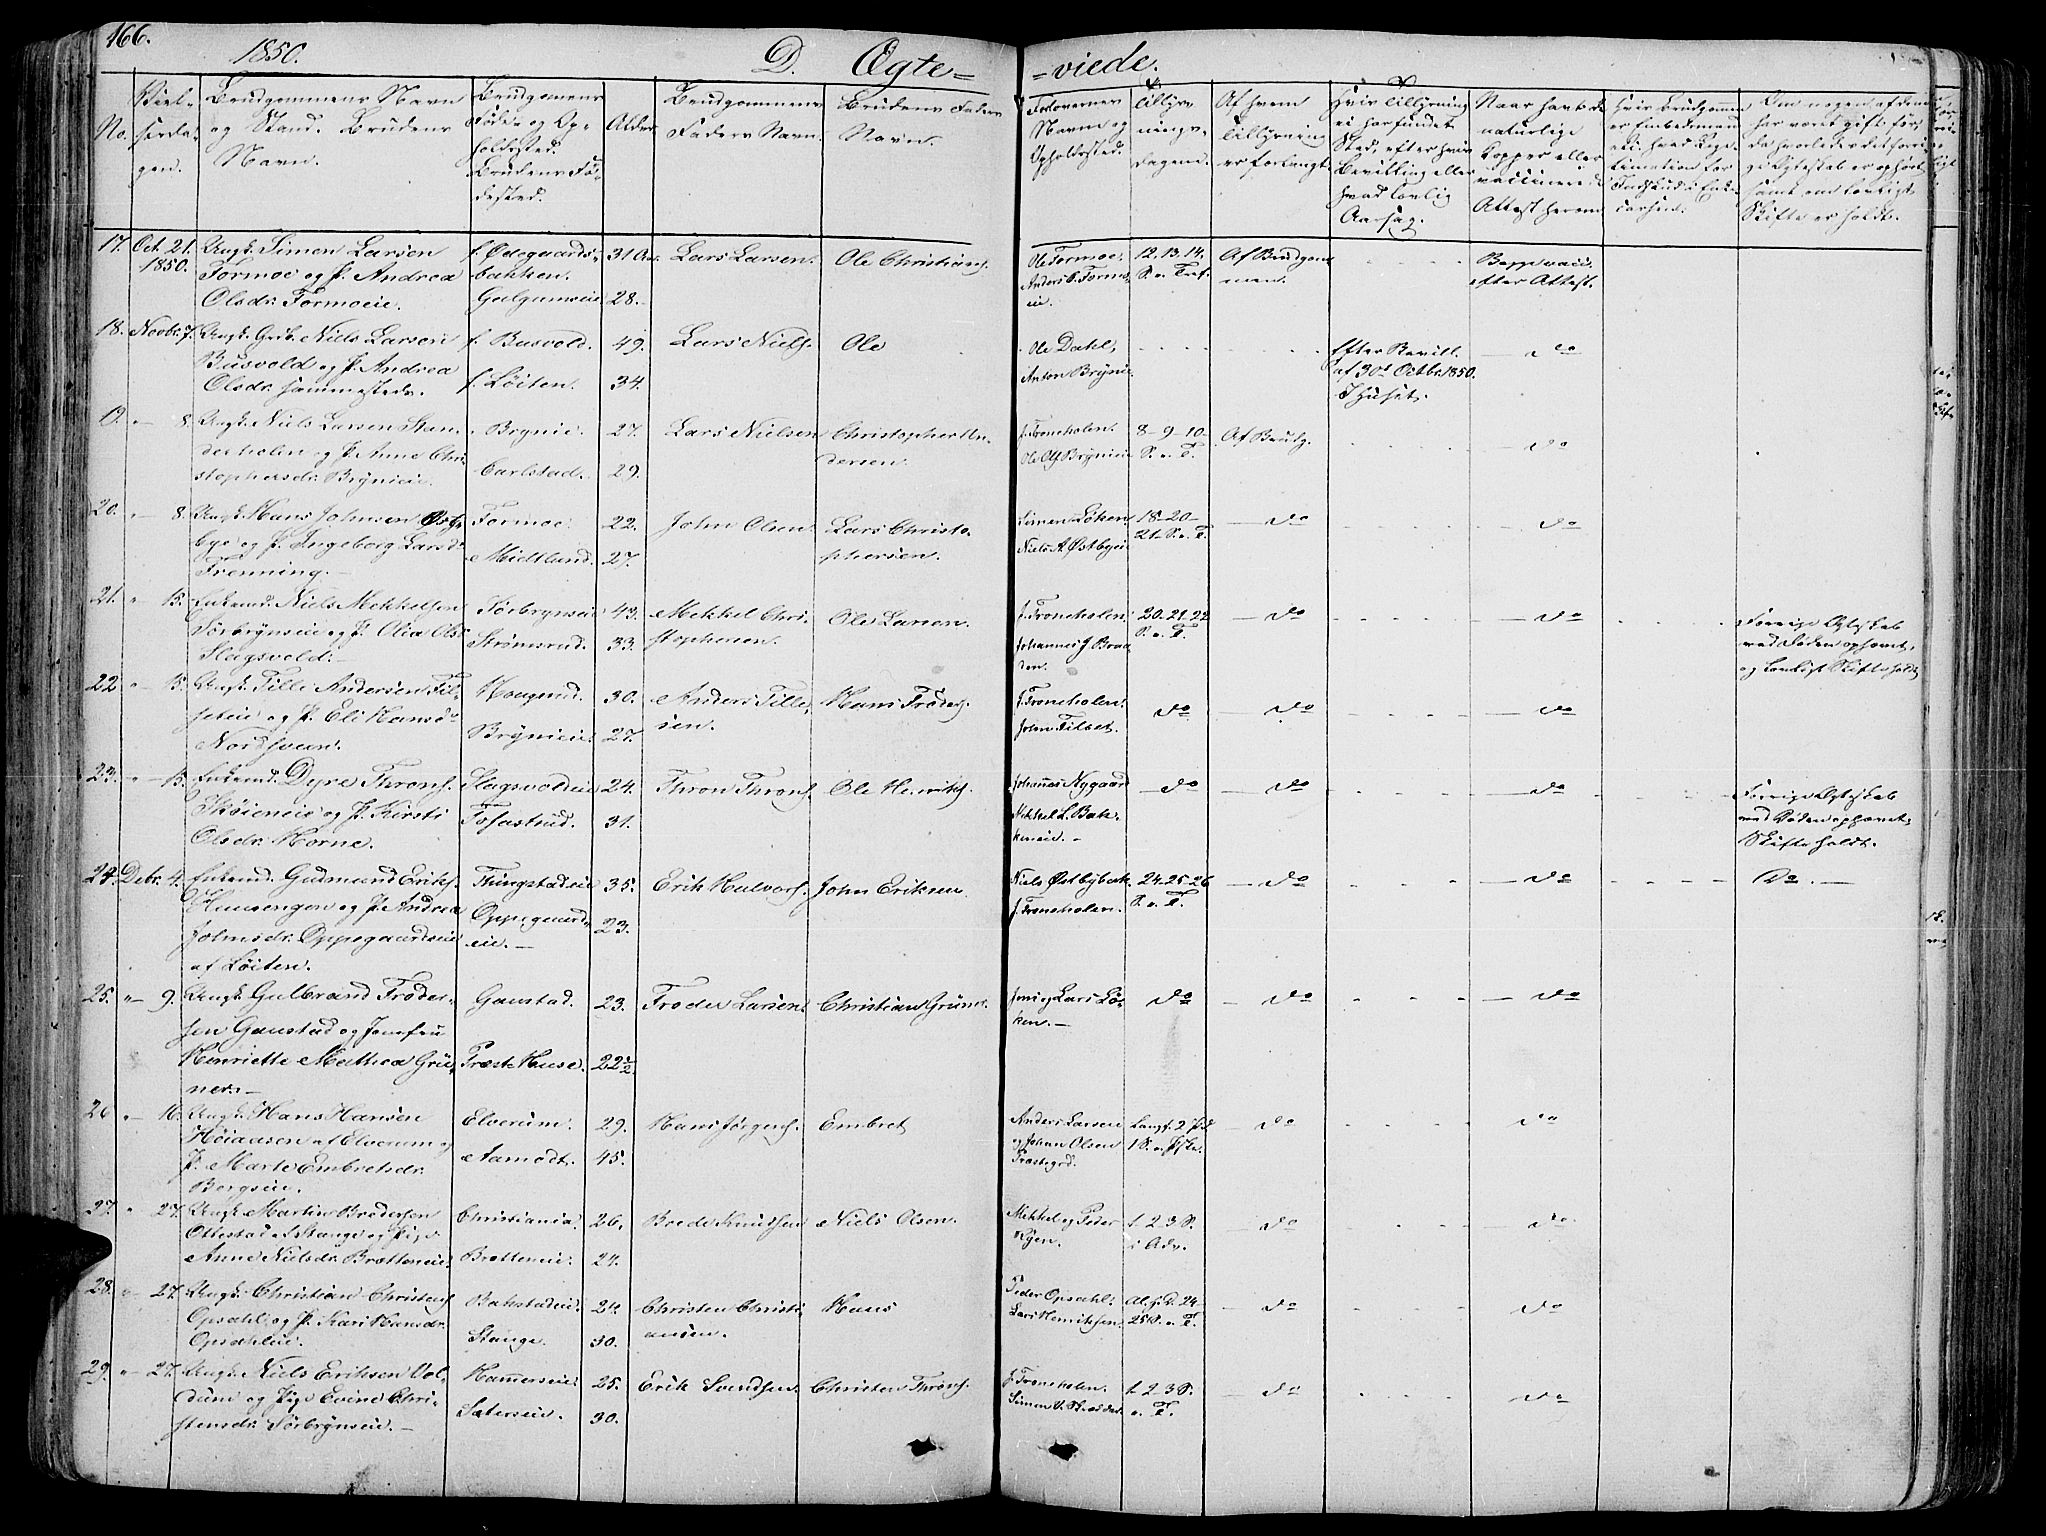 166.
1850.
D. Ægte=
=viede.
No.
Viel-
serda-
gen.
Brudgommens Navn
og Stand. Brudens
Navn.
Brudgommens
Føde- og Op-
holdssted.
Brudens Fø-
dested.
Alder.
Brudgommens
Faders Navn.
Brudens Faders
Navn.
Forlovernes
Navne og
Opholdssted.
Tillys-
nings-
dagene.
Af hvem
Tillysning
er forlangt.
Hvis Tillysning
ei har fundet
Sted, efter hvis
Bevilling eller
hvad lovlig
Aarsag.
Naar havt de
naturlige
Kopper eller
vaccinerede
Attest herom
Om nogen af dem
har været gift før,
samt om lovligt
Skifte er holdt.
17. Oct. 21.
1850.
Ungk. Simen Larsen
Formoe og P. Andrea
Olsdr. Formoeie.
f. Ødegaards-
bakken.
Galgumseie
31 Aar
28.
Lars Larsen.
Ole Christians.
Ole Formoe,
Anders O. Formo-
eie.
12. 13. 14.
S. e. Tref.
Af Brudgom-
men.
Begge vacc.
efter Attest.
18. Novbr. 7.
Ungk. Grdb. Niels Larsen
Busvold og P. Andrea
Olsdr. sammesteds.
f. Busvold.
f. Løiten.
49.
34.
Lars Niels.
Ole
Ole Dahl,
Anton Brynie.
Efter Bevill.
af 30d Octbr. 1850.
I Huset.
do
19. " 8.
Ungk. Niels Larsen Sten-
derholen og P. Anne Chri-
stophersdr. Brynieie.
Brynie.
Carlstad.
27.
29.
Lars Nielsen
Christopher An-
dersen.
J. Froneholen.
Ole Ols. Brynieie
8-9-10-
S. e. T.
Af Brudg.
do
20. " 8.
Ungk. Hans Johnsen Østs-
bye og P. Ingeborg Larsd.
Frenning.
Formoe.
Midtlund.
22.
27.
John Olsen.
Lars Christo-
phersen.
Simen Løken.
Niels A. Østbyei
18-20-
21. S. e. T.
do
do
21. " 15.
Enkemd. Niels Mekkelsen
Sørbrynseie og P. Olia Ols.
Slagsvold.
Sørbrynseie
Strimsrud.
43.
33.
Mekkel Chri-
stophersen.
Ole Larsen.
J. Froneholen.
Johannes J. Braa-
ten.
20. 21. 22
S. e. T.
do
do
Forrige Ægteskab
ved Døden ophævet,
og lovligt Skifte holdt
22 " 15.
Ungk. Tille Andersen Til-
seteie og P. Eli Hansd.
Nordsveen.
Haugrud.
Brynieie.
30.
27.
Anders Tille-
sen.
Hans Frøders.
J. Froneholen.
John Tilset.
do
do
do
23. " 15.
Enkemd. Dyre Throns.
Skøieneie og P. Kirsti
Olsdr. Horne.
Slagsvoldeie
Tofastrud.
24.
31.
Thron Throns.
Ole Henriks.
Johannes Nygaard
Mekkel L. Bak-
keneie.
do
do
do
Forrige Ægteskab
ved Døden ophævet,
Skifte holdt.
24. Debr. 4.
Enkemd. Gudmund Eriks.
Haasengen og P. Andrea
Johnsdr. Oppegaardseie
af Løiten.
Thingstadeie
Oppegaards-
eie.
35.
23.
Erik Halvors.
John Eriksen
Niels Østbybak.
J. Froneholen.
24. 25. 26
S. e. T.
do
do
Do.
25. " 9.
Ungk. Gulbrand Frøder-
sen Gaustad og Jomfru
Henriette Mathea Grü-
ner.
Gaustad.
Præste Huse.
23.
22½
Frøder Larsen.
Christian Grüner.
Jens og Lars Lø-
ken.
do
do
do
26 " 16.
Ungk. Hans Hansen
Høiaasen af Elverum og
P. Marte Embretsdr.
Bergseie.
Elverum.
Aamodt.
29.
45.
Hans Jørgens.
Embret
Anders Larsen
og Johan Olsen
Præstegrd.
1 S.
do
do
27. " 27.
Ungk. Martin Bredersen
Ottestad af Stange og Pige
Anne Nielsdr. Bratteneie.
Christiania.
Bratteneie.
26.
24.
Brede Knudsen
Niels Olsen.
Mekkel og Peder
Ryen.
1. 2. 3 S.
i Adv.
do
do.
28. " 27.
Ungk. Christian Christens.
Opsahl og P. Kari Hansdr.
Opsahleie.
Bakstadeie.
Stange.
24.
30.
Christen Christi-
ansen.
Hans
Peder Opsahl.
Lars Henriksen.
24
25 S. e. T.
do
do
29. " 27.
Ungk. Niels Eriksen Vol-
dum og Pige Evine Chri-
stensdr. Sørbrynseie.
Hammerseie.
Sæterseie.
25.
30.
Erik Svendsen.
Christen Throns.
J. Froneholen.
1. 2. 3 S.
e. T.
do
do